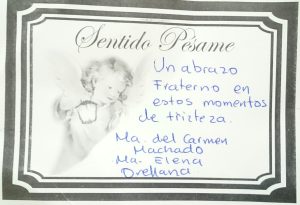 Sentido Pésame
Un abrazo
Fraterno en
estos momentos
de trizteza.
Ma. del Carmen
Machado
Ma. Elena
Orellana